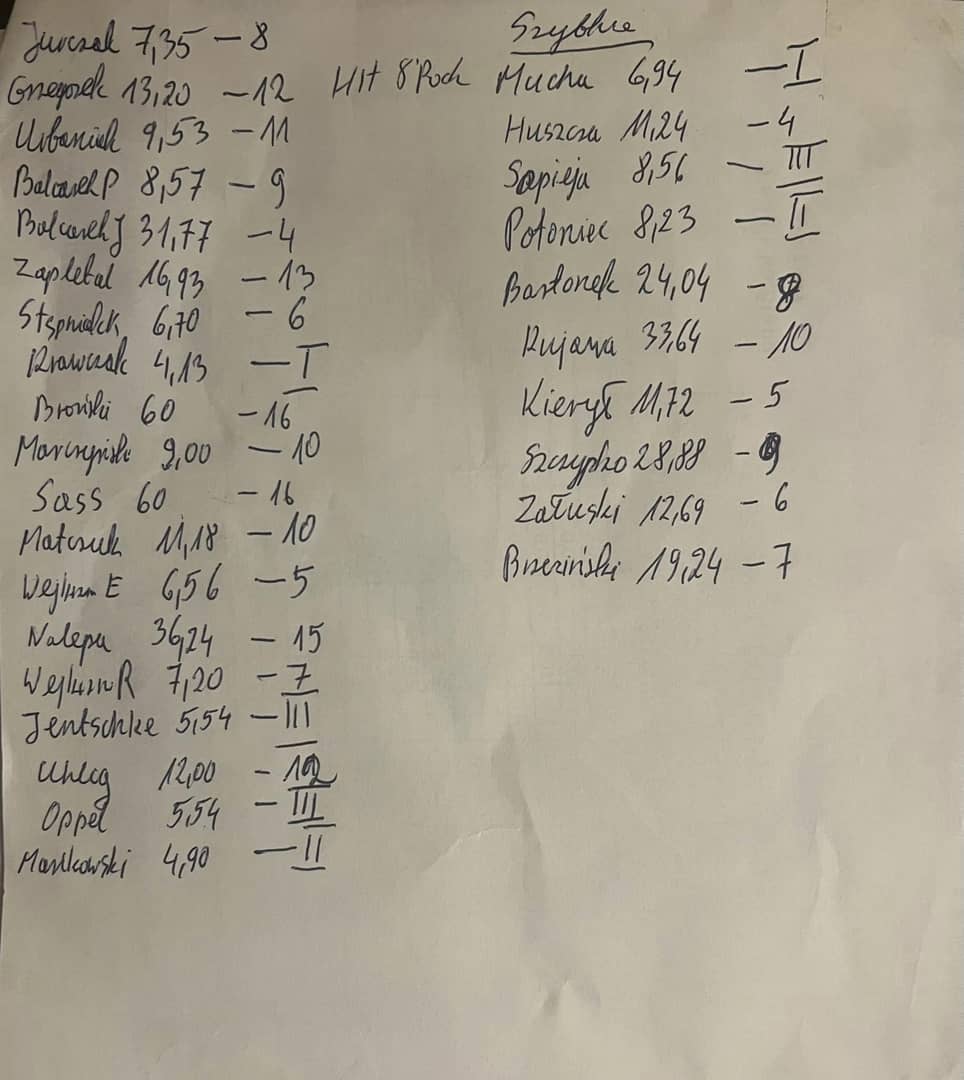 Jurczak 7,35 – 8
Grzegorzek 13,20 – 12
Urbaniak 9,53 – 11
Balcarek P 8,57 – 9
Balcarek J 31,77 – 4
Zapletal 16,93 – 13
Stępniak 6,70 – 6
Krawczak 4,13 – I
Broński 60 – 16
9,00 – 10
Sass 60 – 16
Matczuk 11,18 – 10
E 6,56 – 5
Nalepa 36,24 – 15
R 7,20 – 7
Jentschke 5,54 – III
12,00 – 12
Oppel 5,54 – III
Mańkowski 4,90 – II
Szybkie
Mucha 6,94 – I
Huszcza 11,24 – 4
Sapieja 8,56 – III
Potoniec 8,23 – II
Bartonek 24,04 – 8
Kujawa 33,64 – 10
Kierył 11,72 – 5
Szczypko 28,88 – 9
Załuski 12,69 – 6
Brzeziński 19,24 – 7